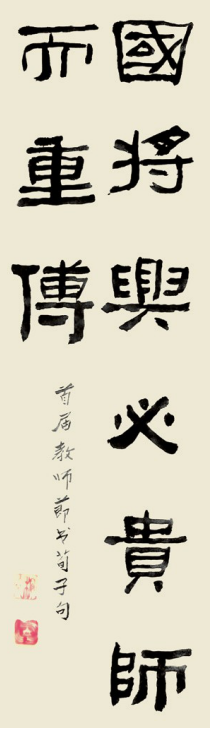 國将興必貴師
而重傅
首届教师節书荀子句